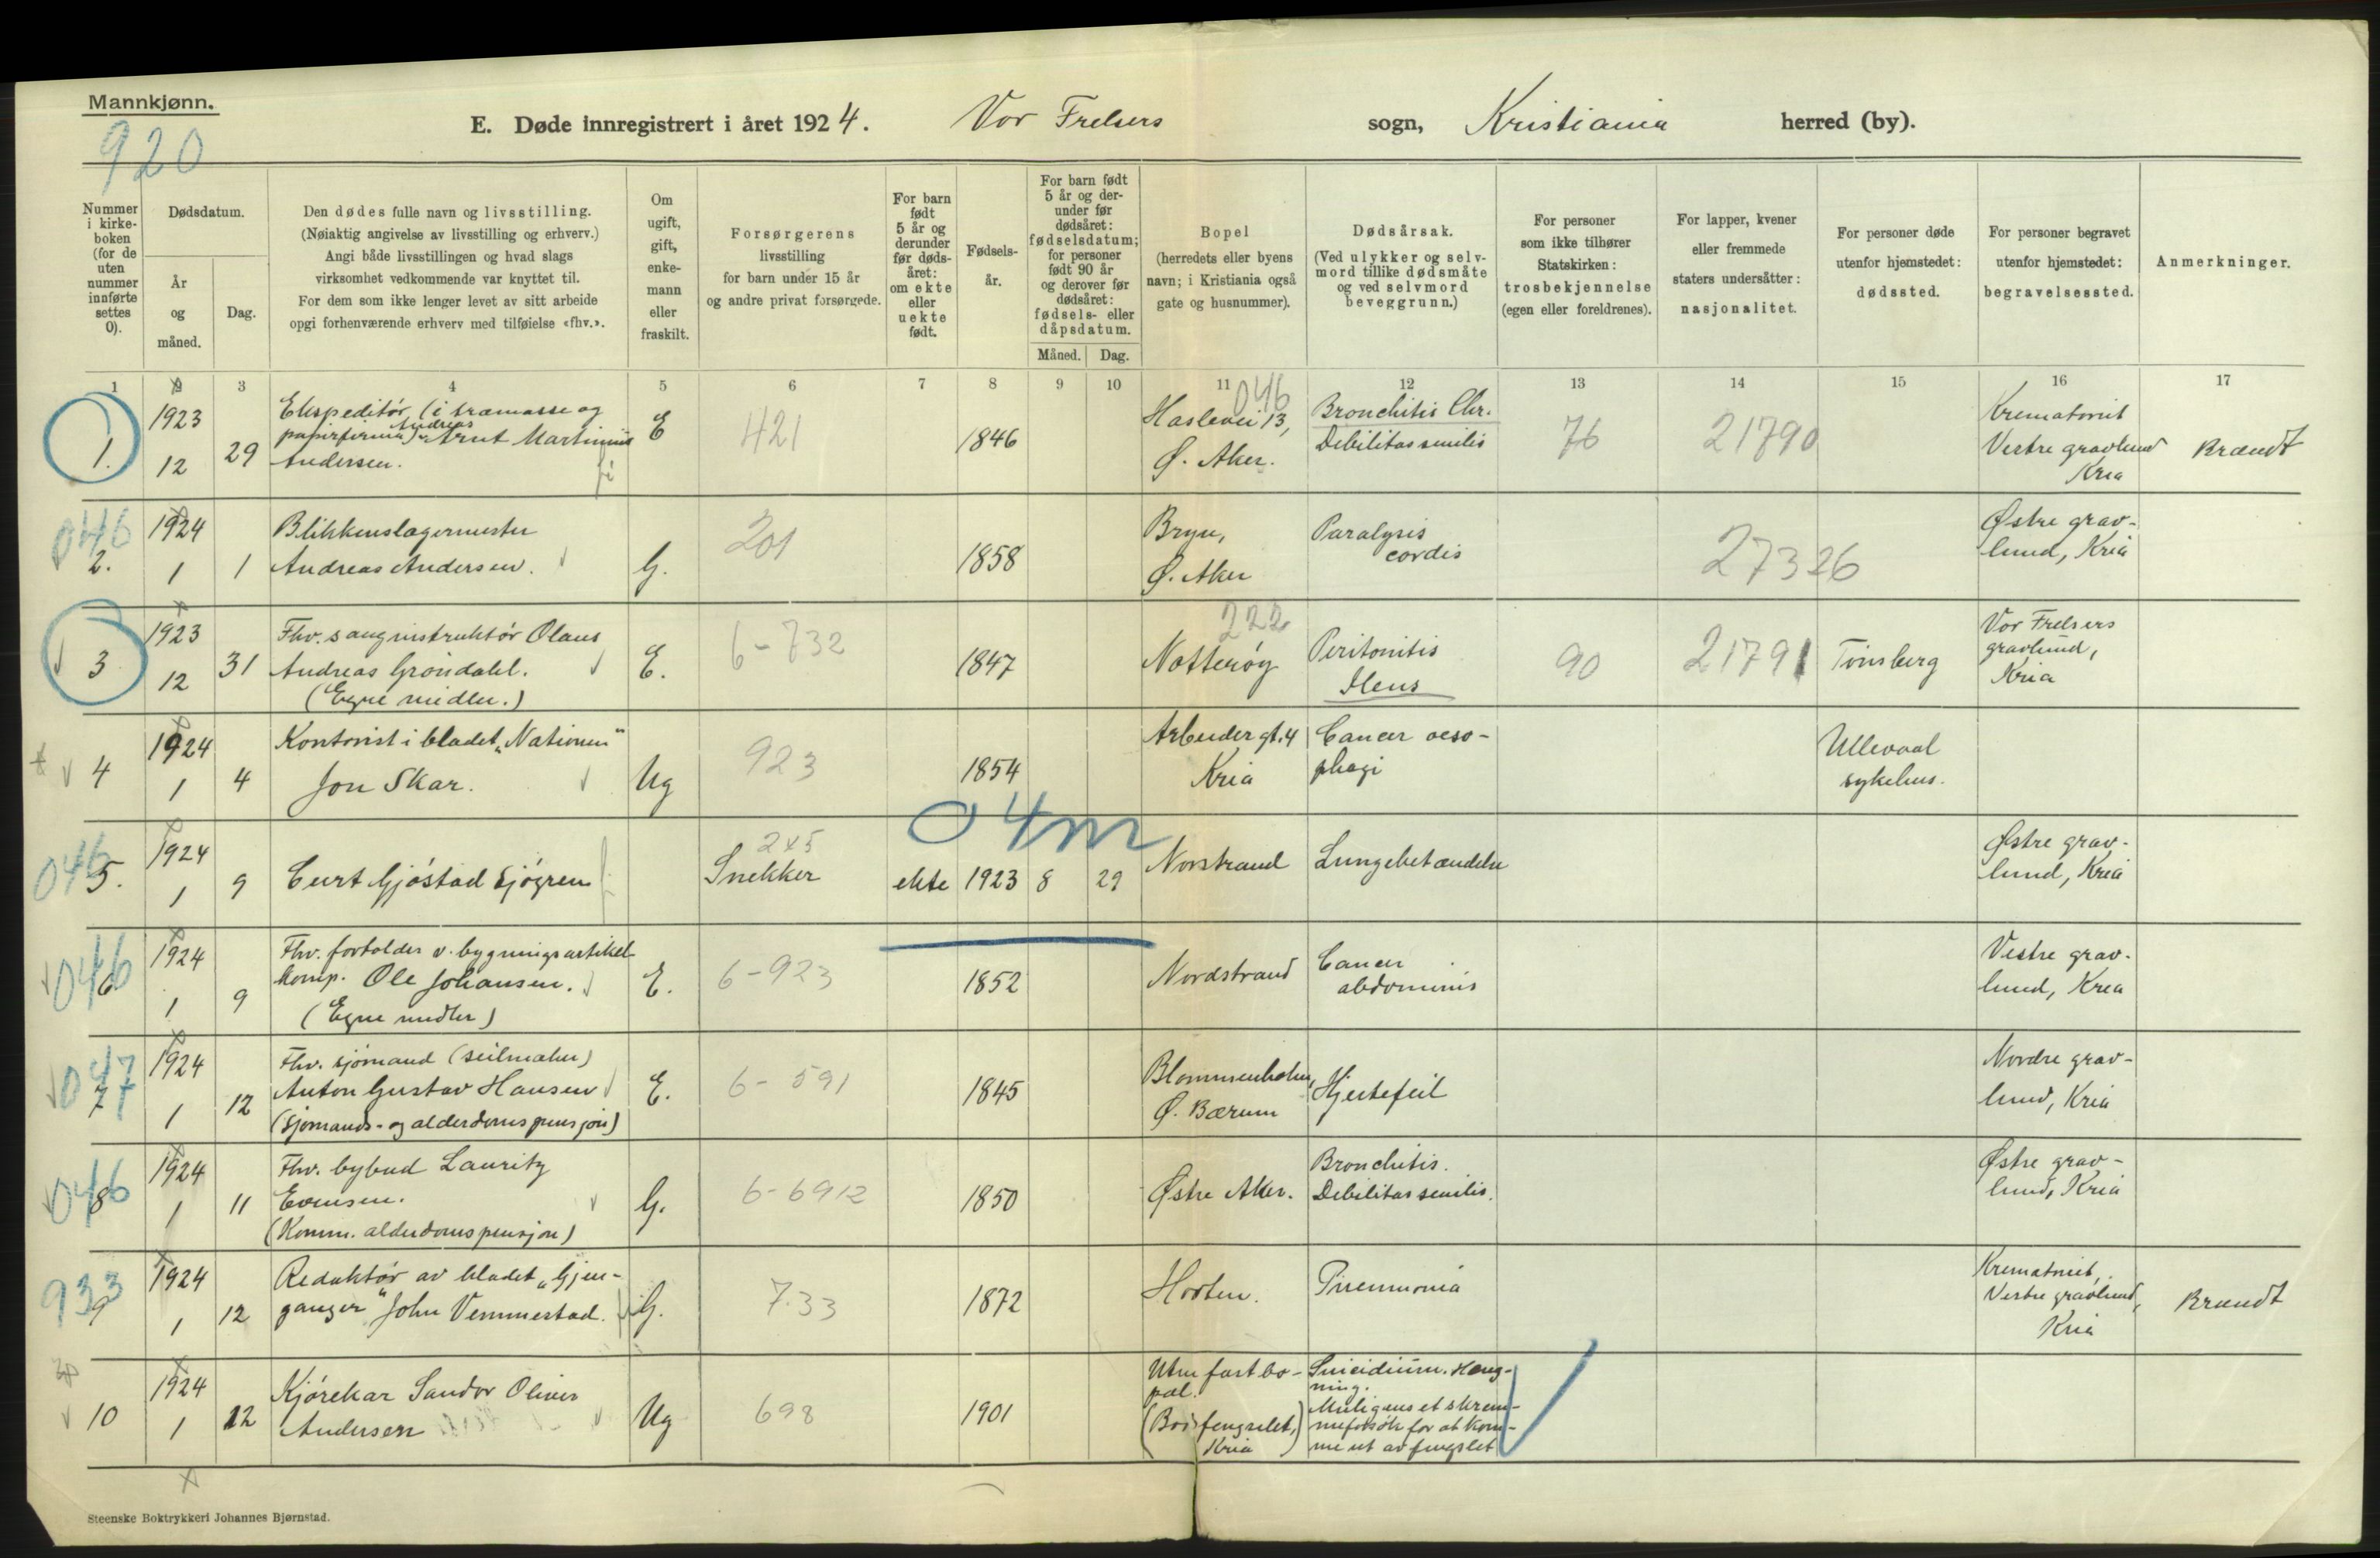 Mannkjønn.
920
E. Døde innregistrert i året 1924. Vor Frelsers sogn, Kristiania herred (by).
Nummer i kirke-boken (for de uten nummer innførte settes 0).
Dødsdatum.
År og måned.
Dag.
Den dødes fulle navn og livsstilling.
(Nøiaktig angivelse av livsstilling og erhverv.)
Angi både livsstillingen og hvad slags
virksomhet vedkommende var knyttet til.
For dem som ikke lenger levet av sitt arbeide
opgi forhenværende erhverv med tilføielse «fhv.».
Om ugift, gift, enke-mann eller fraskilt.
Forsørgerens
livsstilling
for barn under 15 år
og andre privat forsørgede.
For barn født 5 år og derunder før døds-året: om ekte eller uekte født.
Fødsels-år.
For barn født 5 år og der-under før dødsåret: fødselsdatum; for personer født 90 år og derover før dødsåret: fødsels- eller dåpsdatum.
Måned. Dag.
Bopel
(herredets eller byens
navn; i Kristiania også
gate og husnummer).
Dødsårsak.
(Ved ulykker og selv-
mord tillike dødsmåte
og ved selvmord
beveggrunn.)
For personer
som ikke tilhører
Statskirken:
trosbekjennelse
(egen eller foreldrenes).
For lapper, kvener
eller fremmede
staters undersåtter:
nasjonalitet.
For personer døde
utenfor hjemstedet:
dødssted.
For personer begravet
utenfor hjemstedet:
begravelsessted.
Anmerkninger.
1 2 3 4 5 6 7 8 9 10 11 12 13 14 15 16 17
1. 1923 12 29
Ekspeditör (i træmasse og
papirfirma) Andreas Arnt Martinius
Andersen.
E 421 1846
046
Haslevei 13,
Ø. Aker.
Bronchitis Chr.
Debilitas senilis
76 21790
Krematoriet
Vestre gravlund
Kria
Brandt
046
2. 1924 1 1
Blikkenslagermester
Andreas Andersen.
G. 201 1858
Bryn,
Ø. Aker
Paralysis
cordis
27326
Østre grav-
lund, Kria
3 1923 12 31
Fhv. sanginstruktör Olaus
Andreas Gröndahl.
(Egne midler.)
E. 6-732 1847
222
Nötteröy
Peritonitis
Ileus
90 21791 Tönsberg
Vor Frelsers
gravlund,
Kria
4 1924 1 4
Kontorist i bladet „Nationen"
Jon Skar.
Ug 923 1854
Arbeidergt. 4
Kria
Cancer oeso-
phagi
Ullevaal
sykehus.
04m
046
5. 1924 1 9
Curt Gjöstad Sjögren
245
Snekker
ekte 1923 8 29
Norstrand
Lungebetændelse
Østre grav-
lund, Kria
046
6 1924 1 9
Fhv. forholder v. bygningsartikel-
komp. Ole Johansen.
(Egne midler)
E. 6-923 1852
Nordstrand
Cancer
abdominis
Vestre grav-
lund, Kria
047
7 1924 1 12
Fhv. sjömand (seilmaker)
Anton Gustav Hansen
(Sjömands- og alderdomspensjon)
E. 6-591 1845
Blommenholm,
Ø. Bærum
Hjertefeil
Nordre grav-
lund, Kria
046
8 1924 1 11
Fhv. bybud Lauritz
Evensen.
(Komm. alderdomspensjon)
G. 6-6912 1850
Østre Aker.
Bronchitis.
Debilitas senilis.
Østre grav-
lund, Kria
933
9 1924 1 12
Redaktör av bladet „Gjen-
ganger" John Vemmestad.
G. 7.33 1872
Horten.
Pneumonia
Krematoriet,
Vestre gravlund,
Kria
Brandt
10 1924 1 12
Kjörekar Sandor Oliver
Andersen
Ug 698 1901
Uten fast bo-
pæl.
(Bodsfengselet,
Kria)
Suicidium. Hæng-
ning.
Muligens et skrem-
meforsök for at kom-
me ut av fengslet
Steenske Boktrykkeri Johannes Bjørnstad.